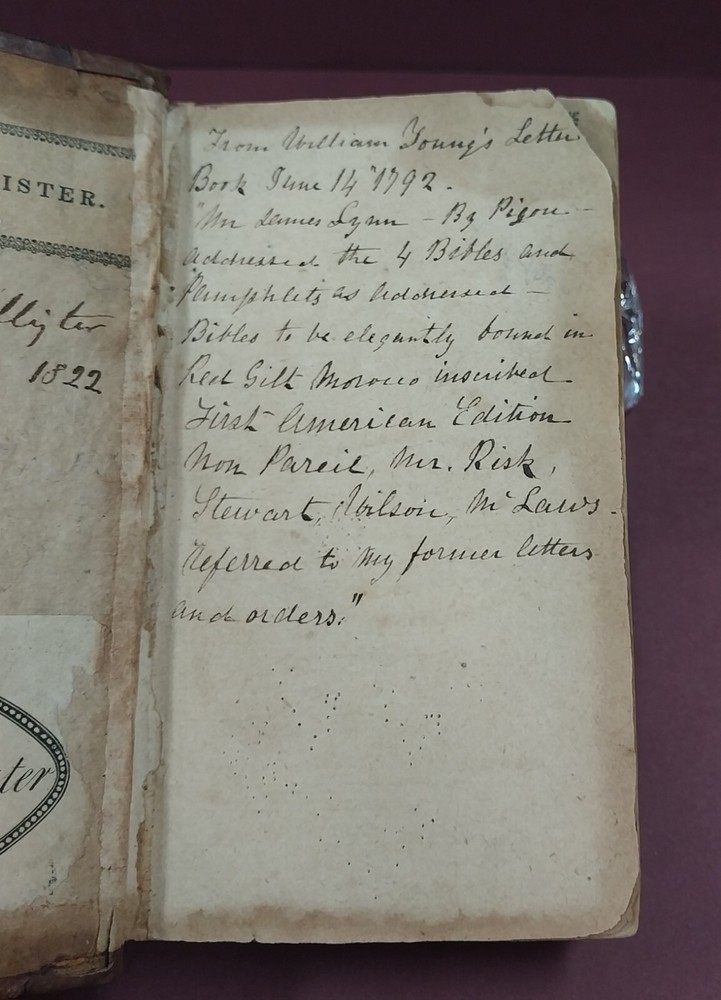 ISTER.
llister
1822
ter
From William Young's Letter
Book June 14" 1792.
"Mr James Lynn - By Pigou -
addressed the 4 Bibles and
Pamphlets as addressed -
Bibles to be elegantly bound in
Red Gilt Morocco inscribed
First American Edition
Non Pareil, Mr. Risk,
Stewart, Wilson, Mc Laws.
referred to my former letters
and orders."